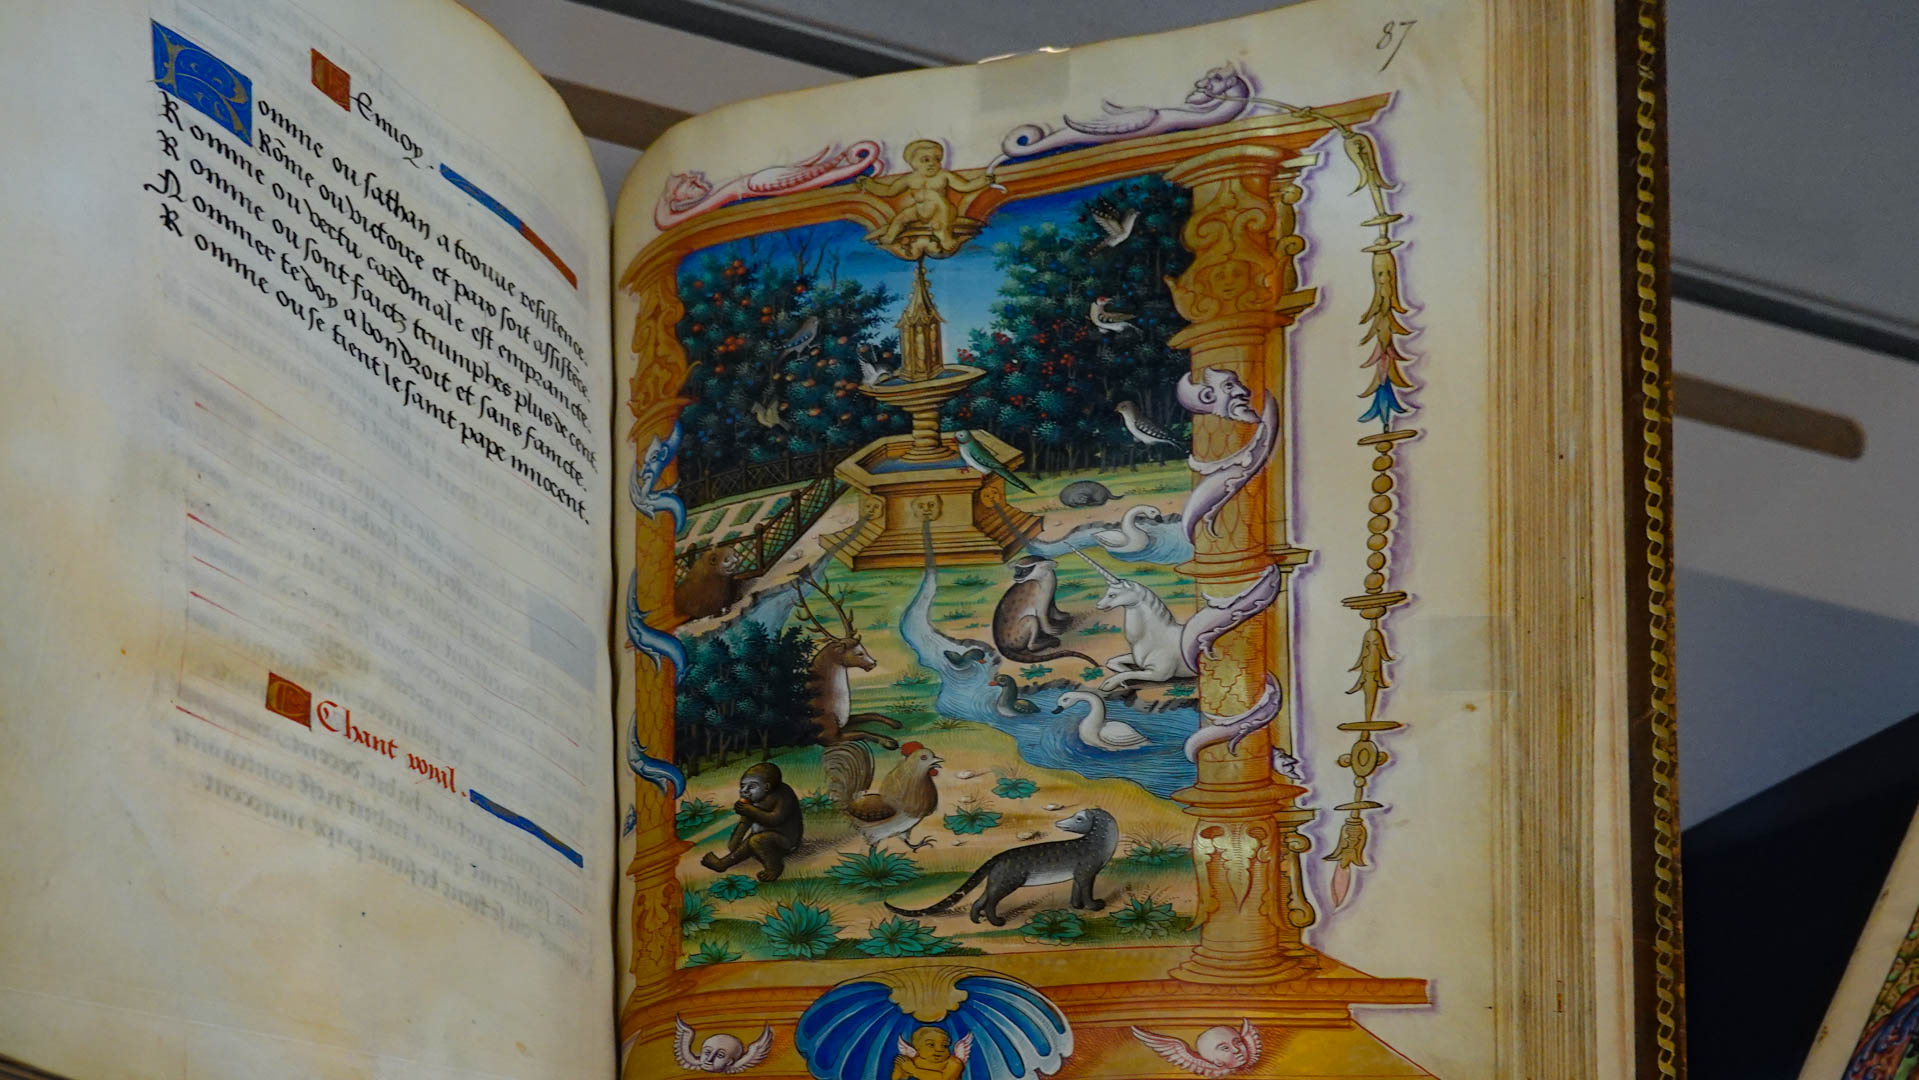 Enuoy.
Romme ou sathan a trouue resistence.
Rōme ou victoire et paix soit assistēce.
Romme ou vertu cardinale est emprainctē.
Romme ou sont faictz triumphes plus de cent.
Nommer te doy a bon droit et sans faincte.
Romme ou se tient le saint pape innocent.
Chant
87